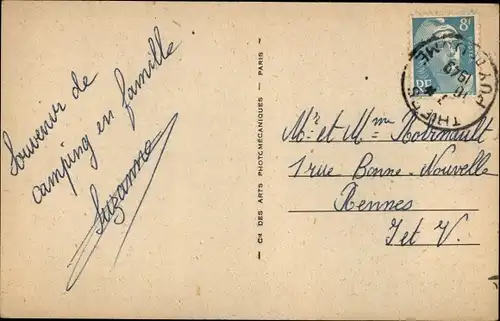 Souvenir de
camping en famille
Suzanne
Cie DES ARTS PHOTOMÉCANIQUES — PARIS
8F
POSTES
RF
THIERS
PUY-DE-DÔME
1949
Mr et Mme
1 rue Bonne-Nouvelle
Rennes
I et V.